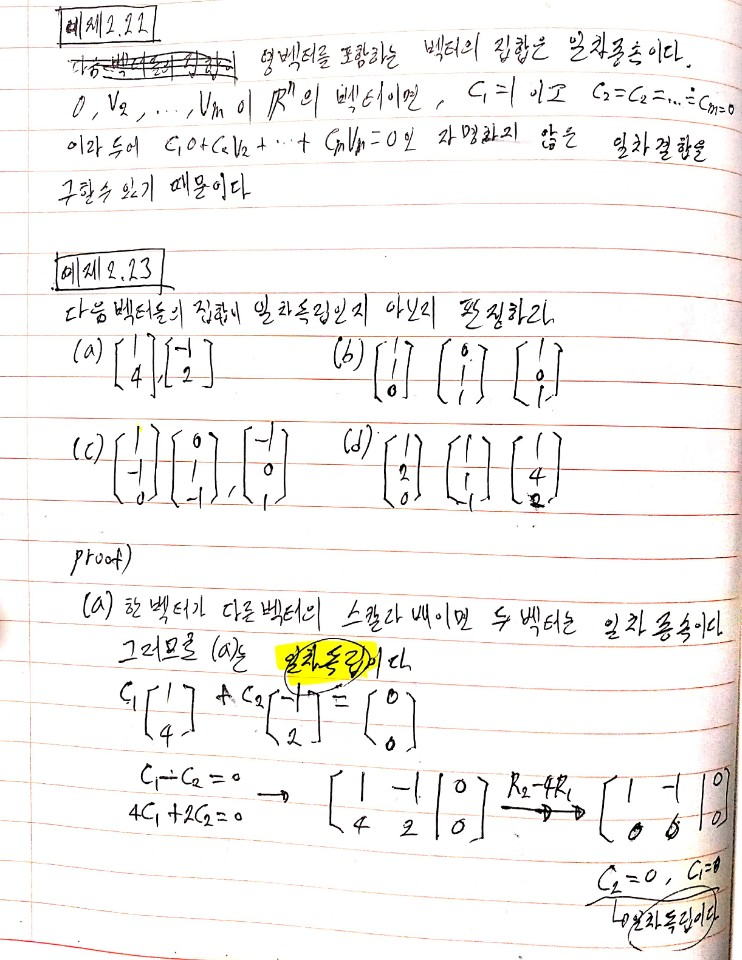 예제2.22
다음 벡터들의 집합이 영벡터를 포함하는 벡터의 집합은 일차종속이다.
0, V₂, ..., Vₘ 이 ℝⁿ의 벡터이면, C₁=1 이고 C₂=C₂=...=Cₘ=0
이라 두어 C₁0+C₂V₂+...+CₘVₘ=0인 자명하지 않은 일차결합을
구할수 있기 때문이다
예제2.23
다음 벡터들의 집합이 일차독립인지 아닌지 판정하라
(a) [1 4], [-1 2] (b) [1 1 0] [0 1 1] [1 0 1]
(c) [1 -1 0] [0 1 -1], [-1 0 1] (d) [1 2 0] [1 1 -1] [1 4 2]
proof)
(a) 한 벡터가 다른 벡터의 스칼라 배이면 두 벡터는 일차 종속이다
그러므로 (a)는 일차독립이다
C₁[1 4] + C₂[-1 2] = [0 0]
C₁-C₂=0
4C₁+2C₂=0 → [1 -1 | 0; 4 2 | 0] R₂-4R₁ → [1 -1 | 0; 0 6 | 0]
C₂=0, C₁=0
↳일차독립이다